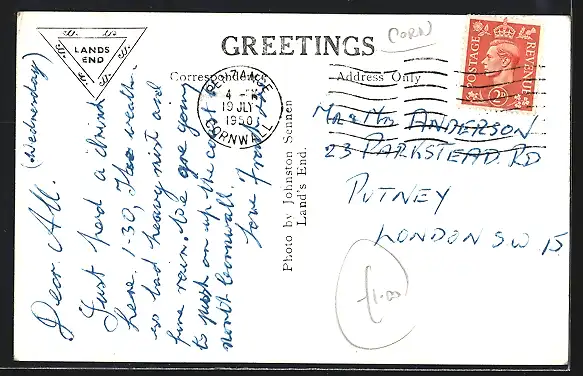 LANDS
END
GREETINGS
CORN
POSTAGE
REVENUE
2D
Correspondence
Address Only
PENZANCE
4 -
19 JLY
1950
CORNWALL
(Wednesday)
Dear All
Just had a drink
here. 1-30, The weather
is bad heavy mist and
fine rain. We are going
to push on up the coast to
north Cornwall.
love Frank
Photo by Johnston Sennen
Land's End.
MR & MRS ANDERSON
23 PARKSTEAD. RD
PUTNEY
LONDON SW 15
£1.00